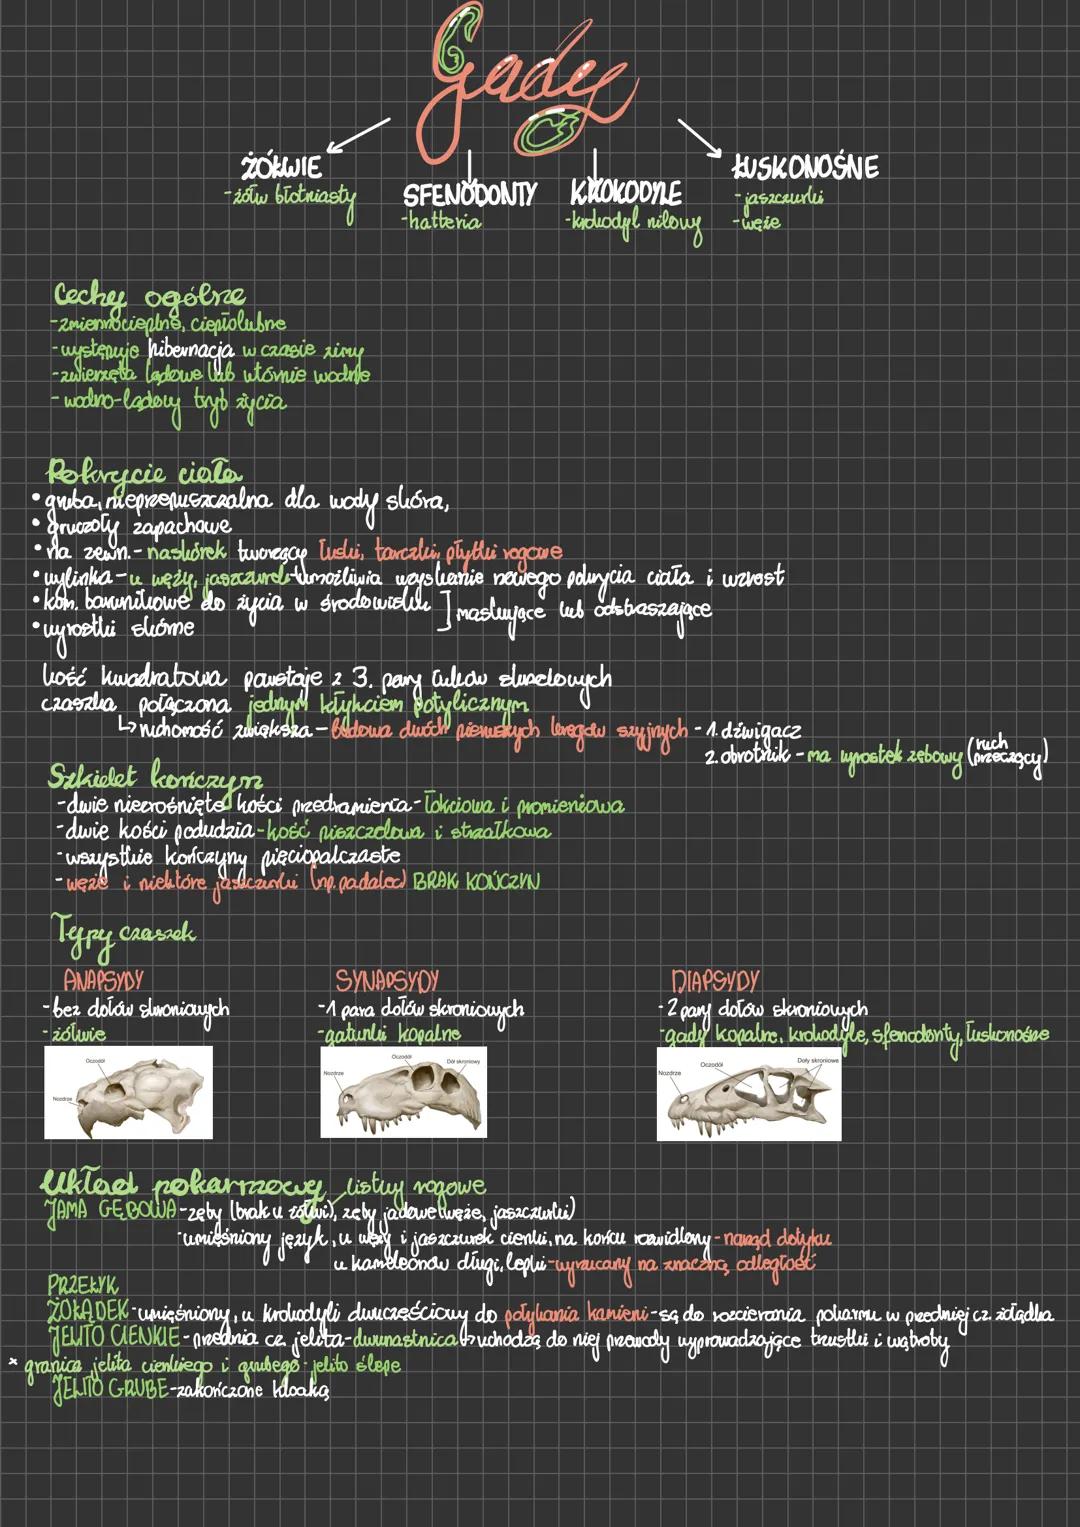 Gady
ŻÓŁWIE
- żółw błotniasty
SFENODONTY
- hatteria
KROKODYLE
- krokodyl nilowy
ŁUSKONOŚNE
- jaszczurki
- węże
Cechy ogólne
- zmiennocieplne, ciepłolubne
- występuje hibernacja w czasie zimy
- zwierzęta lądowe lub wtórnie wodne
- wodno-lądowy tryb życia
Pokrycie ciała
• gruba, nieprzepuszczalna dla wody skóra,
• gruczoły zapachowe
• na zewn. - naskórek tworzący łuski, tarczki, płytki rogowe
• wylinka - u węży, jaszczurek umożliwia wzyskanie nowego pokrycia ciała i wzrost
• kom. barwnikowe do życia w środowisku ] maskujące lub odstraszające
• wyrostki skórne
kość kwadratowa powstaje z 3. pary łuków skrzelowych
czaszka połączona jednym kłykciem potylicznym
↳ ruchomość zwiększa - budowa dwóch pierwszych kręgów szyjnych - 1. dźwigacz
2. obrotnik - ma wyrostek zębowy (ruch przeczący)
Szkielet kończyn
- dwie niezrośnięte kości przedramienia - łokciowa i promieniowa
- dwie kości podudzia - kość piszczelowa i strzałkowa
- wszystkie kończyny pięciopalczaste
- węże i niektóre jaszczurki (np. padalec) BRAK KOŃCZYN
Typy czaszek
ANAPSYDY
- bez dołów skroniowych
- żółwie
Oczodół
Nozdrza
SYNAPSYDY
- 1 para dołów skroniowych
- gatunki kopalne
Oczodół
Dół skroniowy
Nozdrze
DIAPSYDY
- 2 pary dołów skroniowych
- gady kopalne, krokodyle, sfenodonty, łuskonośne
Doły skroniowe
Oczodół
Nozdrze
Układ pokarmowy listwy rogowe
JAMA GĘBOWA - zęby (brak u żółwi), zęby jadowe (węże, jaszczurki)
umięśniony język, u węży i jaszczurek cienki, na końcu rozwidlony - narząd dotyku
u kameleonów długi, lepki - wyrzucany na znaczną odległość
PRZEŁYK
ŻOŁĄDEK - umięśniony, u krokodyli dwuczęściowy do połykania kamieni - są do rozcierania pokarmu w przedniej cz. żołądka
JELITO CIENKIE - przednia cz. jelita - dwunastnica ↳ wchodzą do niej przewody wyprowadzające trzustki i wątroby
* granica jelita cienkiego i grubego - jelito ślepe
JELITO GRUBE - zakończone kloaką